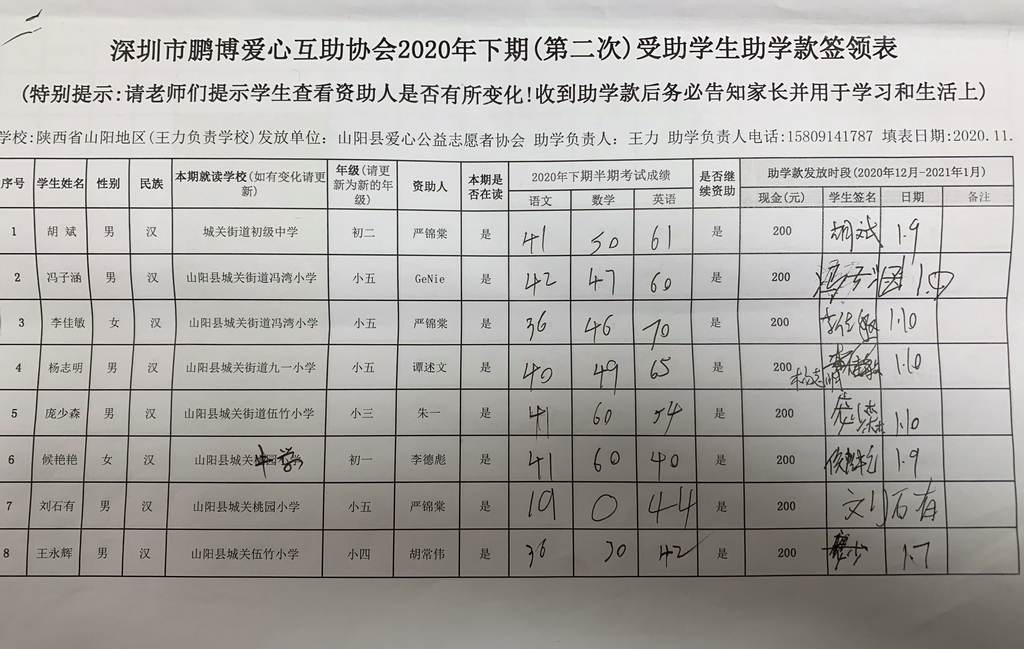 深圳市鹏博爱心互助协会2020年下期(第二次)受助学生助学款签领表
(特别提示:请老师们提示学生查看资助人是否有所变化!收到助学款后务必告知家长并用于学习和生活上)
学校:陕西省山阳地区(王力负责学校)发放单位: 山阳县爱心公益志愿者协会 助学负责人: 王力 助学负责人电话:15809141787 填表日期:2020.11.
序号 学生姓名 性别 民族 本期就读学校(如有变化请更新) 年级(请更新为新的年级) 资助人 本期是否在读 2020年下期半期考试成绩 是否继续资助 助学款发放时段(2020年12月-2021年1月)
语文 数学 英语 现金(元) 学生签名 日期 备注
1 胡 斌 男 汉 城关街道初级中学 初二 严锦棠 是 41 50 61 是 200 胡斌 1.9
2 冯子涵 男 汉 山阳县城关街道冯湾小学 小五 GeNie 是 42 47 60 是 200 冯子涵
3 李佳敏 女 汉 山阳县城关街道冯湾小学 小五 严锦棠 是 36 46 70 是 200 李佳敏 1.10
4 杨志明 男 汉 山阳县城关街道九一小学 小五 谭述文 是 40 49 65 是 200 杨志明 1.10
5 庞少森 男 汉 山阳县城关街道伍竹小学 小三 朱一 是 41 60 54 是 200 1.10
6 候艳艳 女 汉 山阳县城关中学 初一 李德彪 是 41 60 40 是 200 侯艳艳 1.9
7 刘石有 男 汉 山阳县城关桃园小学 小五 严锦棠 是 19 0 44 是 200 刘石有
8 王永辉 男 汉 山阳县城关伍竹小学 小四 胡常伟 是 36 30 42 是 200 1.7